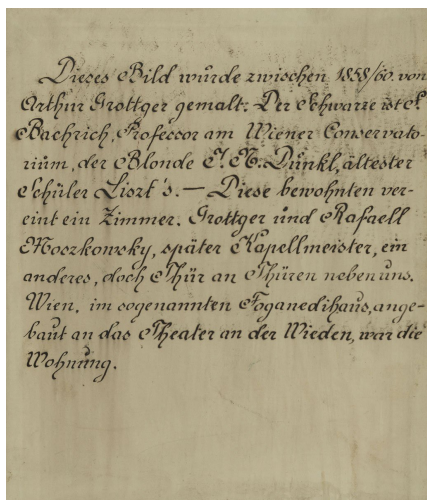 Dieses Bild wurde zwischen 1858/60. von
Arthur Grottger gemalt. Der Schwarze ist S.
Bachrich, Professor am Wiener Conservato-
rium, der Blonde J. N. Dunkl, ältester
Schüler Liszt's. — Diese bewohnten ver-
eint ein Zimmer. Grottger und Rafaell
Moszkowsky, später Kapellmeister, ein
anderes, doch Thür an Thüren neben uns.
Wien, im sogenannten Foganedihaus, ange-
baut an das Theater an der Wieden, war die
Wohnung.